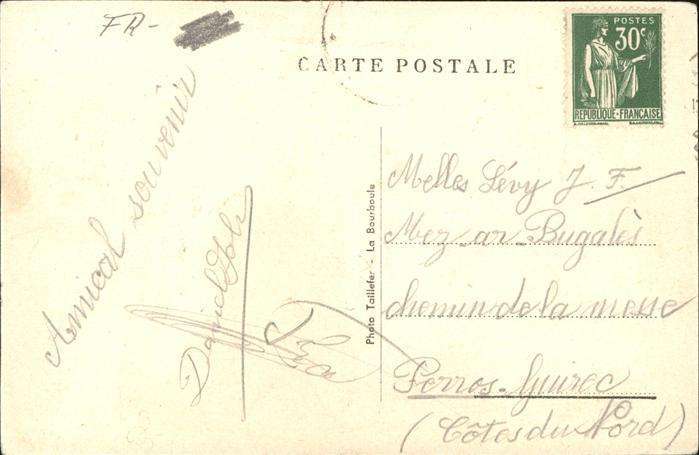 FR-
CARTE POSTALE
POSTES
30c
RÉPUBLIQUE-FRANÇAISE
Amical souvenir
Daniel
Photo Taillefer - La Bourboule
Melles Lévy J. F.
Mez-an-Bugalès
chemin de la messe
Perros-Guirec
(Côtes du Nord)